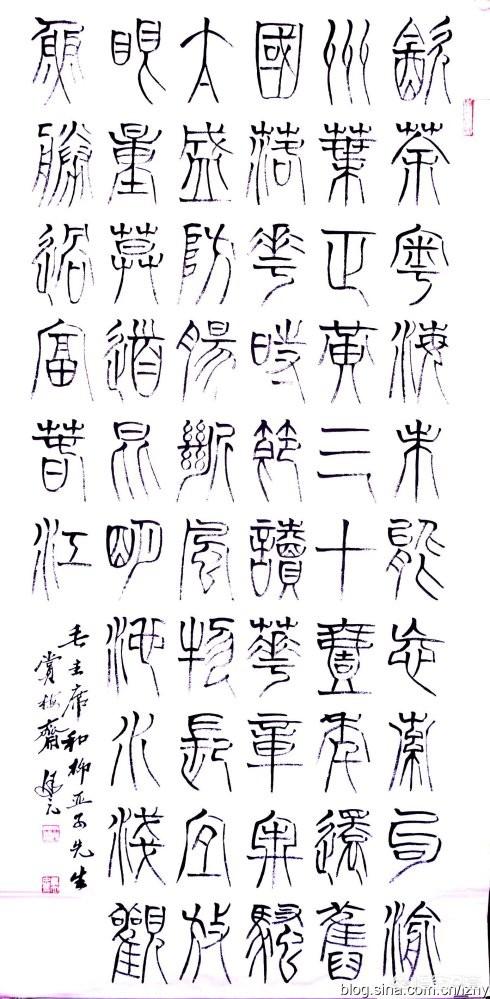 飲茶粵海未能忘索句渝
州葉正黃三十壹年還舊
國落花時節讀華章牢騷
太盛防腸斷風物長宜放
眼量莫道昆明池水淺觀
魚勝過富春江
毛主席和柳亚子先生
賞梅齋
blog.sina.com.cn/izhy